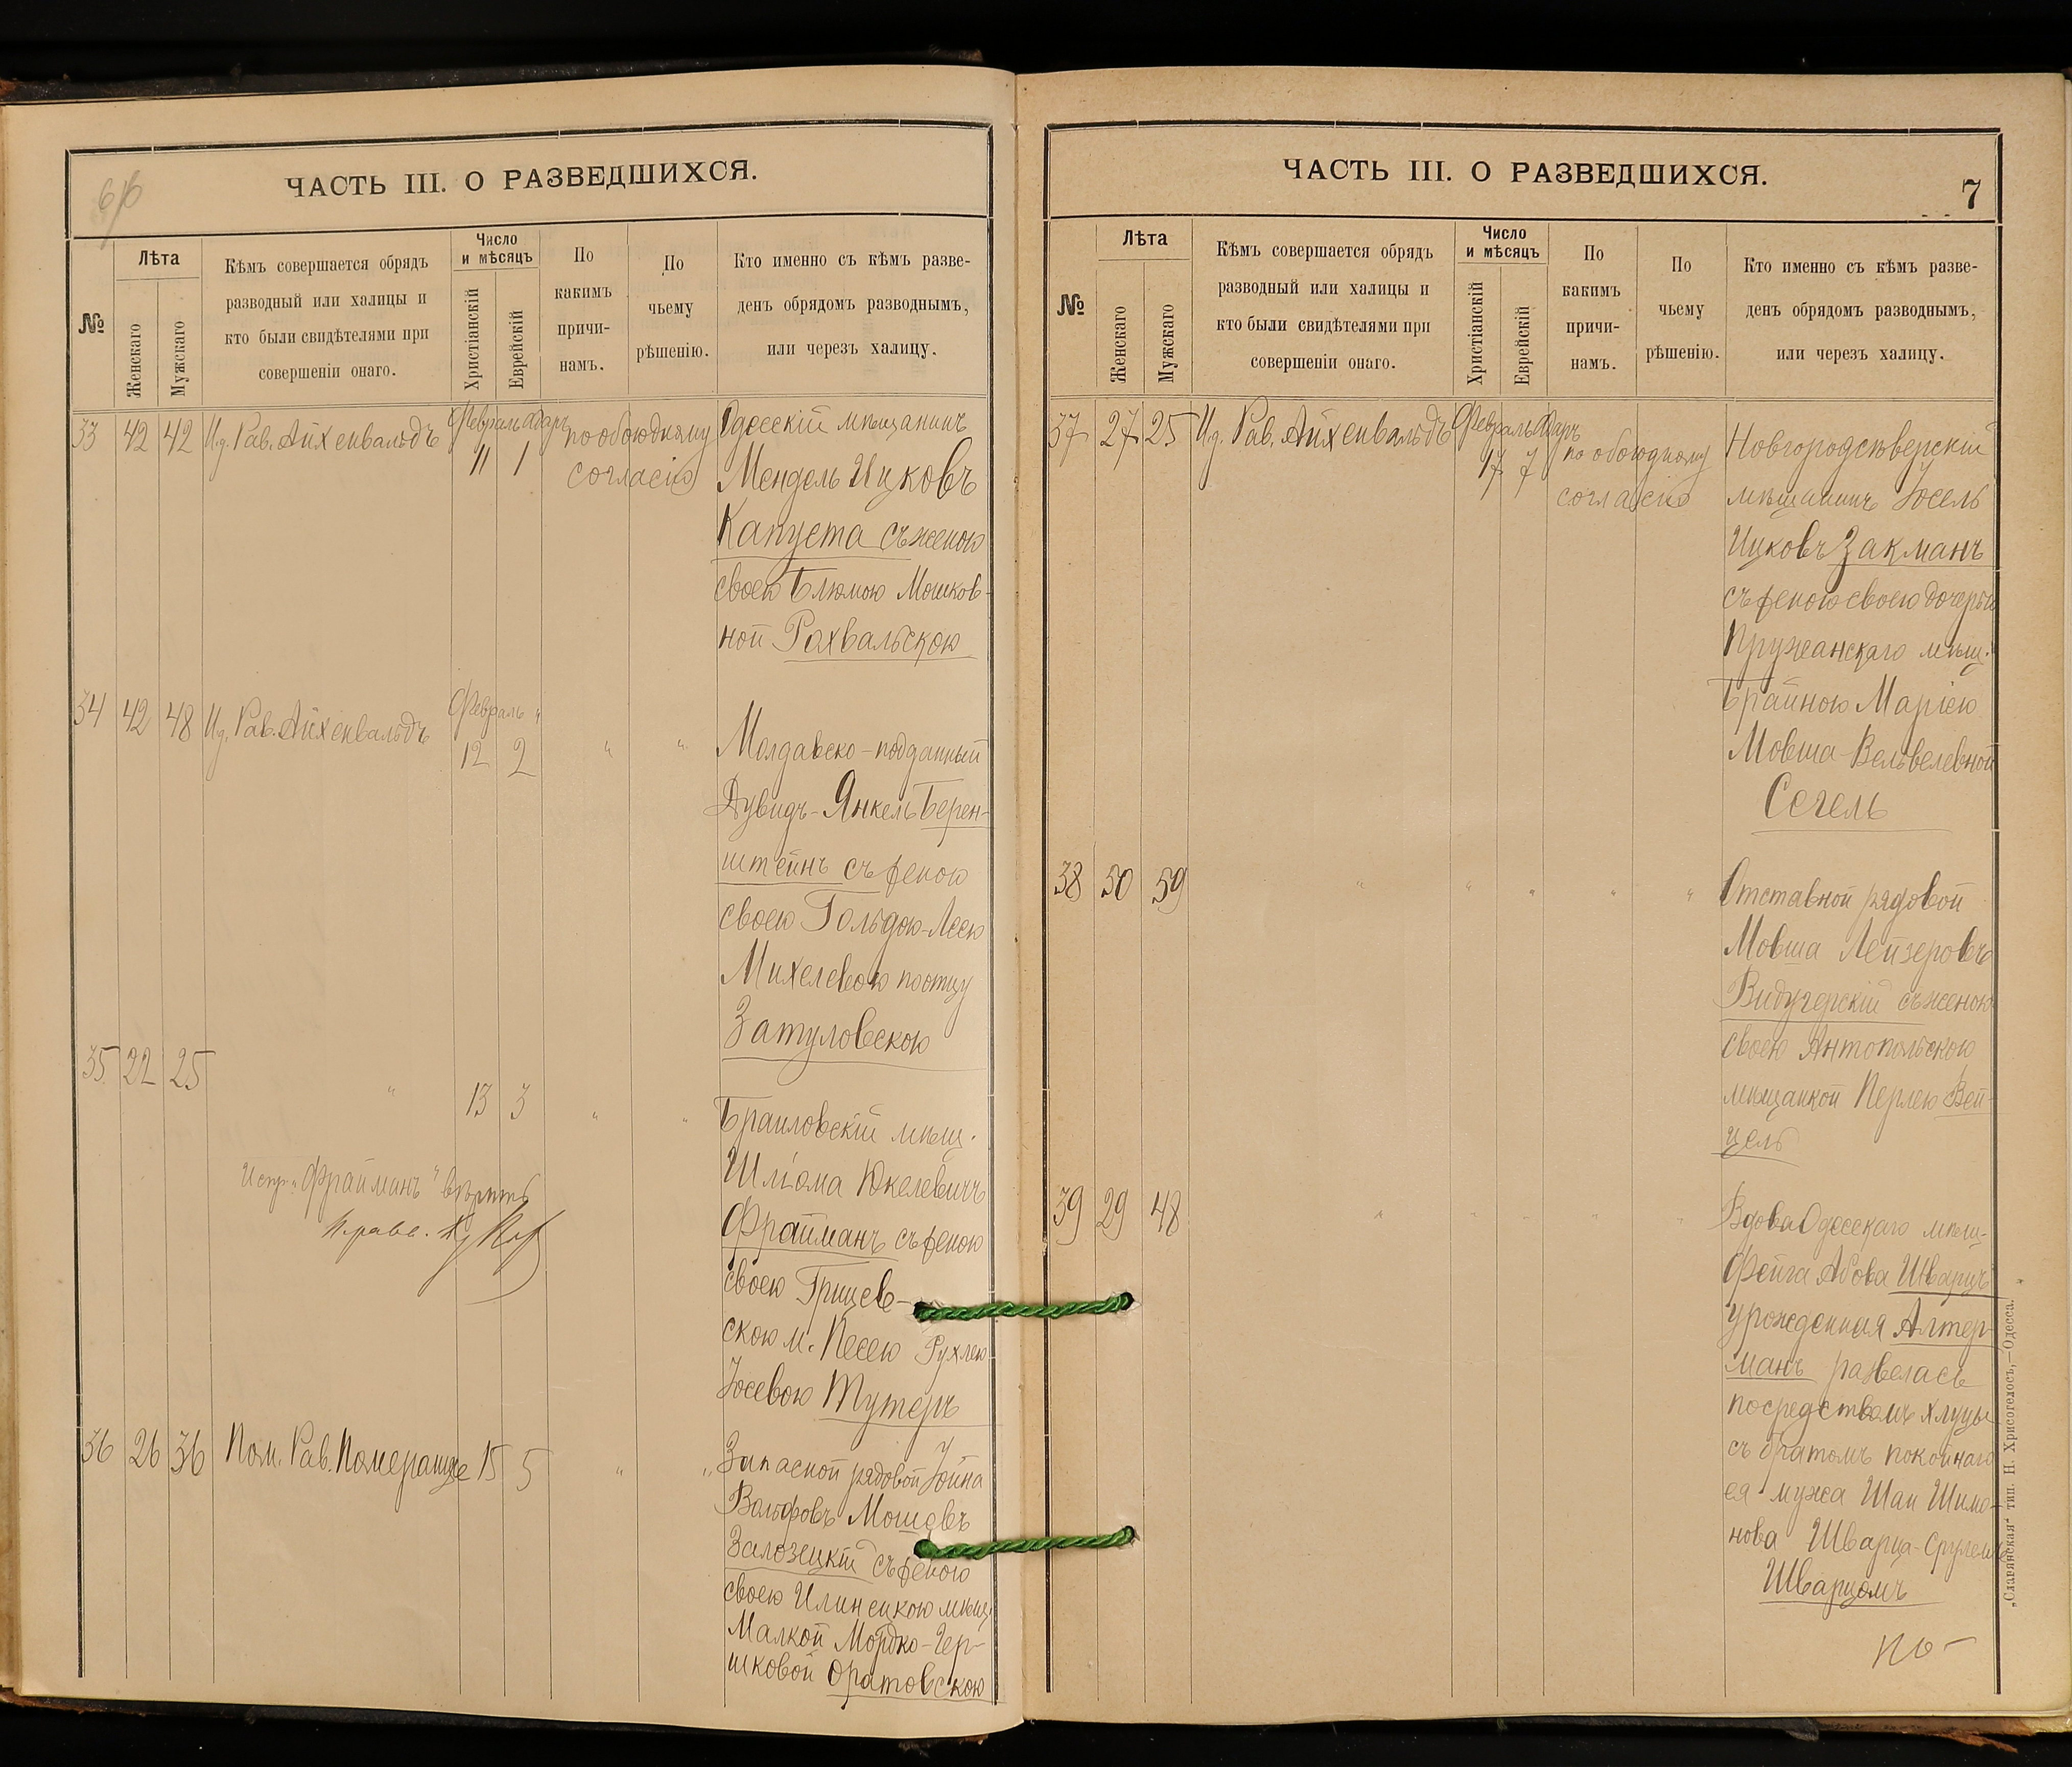 6/б
ЧАСТЬ III. О РАЗВЕДШИХСЯ.
№
Лѣта
Женскаго
Мужскаго
Кѣмъ совершается обрядъ
разводный или халицы и
кто были свидѣтелями при
совершеніи онаго.
Число
и мѣсяцъ
Христіанскій
Еврейскій
По
какимъ
причи-
намъ.
По
чьему
рѣшенію.
Кто именно съ кѣмъ разве-
денъ обрядомъ разводнымъ,
или черезъ халицу.
33 42 42 И.д. Рав. Айхенвальдъ Февраль Адаръ 11 1 по обоюдному
согласію
Одесскій мѣщанинъ
Мендель Ицковъ
Капуста съ женою
своею Блюмою Мошков-
ной Рахвальскою
34 42 48 И.д. Рав. Айхенвальдъ Февраль " 12 2 " "
Молдавско-подданный
Дувидъ-Янкель Берен-
штейнъ съ женою
своею Гольдою-Леею
Михелевою по отцу
Затуловскою
35 22 25 " 13 3 " "
Браиловскій мѣщ.
Шліома Юкелевичъ
Фрайманъ съ женою
своею Грицев-
скою м. Песею Рухлею
Іосевою Тутеръ
Испр. "Фрайманъ" вѣрить
36 26 36 Пом. Рав. Померанце 15 5 " "
Запасной рядовой Іойна
Вольфовъ Мошевъ
Залозецкій съ женою
своею Илинецкою мѣщ.
Малкой Мордко-Гер-
шковой Оратовскою
ЧАСТЬ III. О РАЗВЕДШИХСЯ.
7
№
Лѣта
Женскаго
Мужскаго
Кѣмъ совершается обрядъ
разводный или халицы и
кто были свидѣтелями при
совершеніи онаго.
Число
и мѣсяцъ
Христіанскій
Еврейскій
По
какимъ
причи-
намъ.
По
чьему
рѣшенію.
Кто именно съ кѣмъ разве-
денъ обрядомъ разводнымъ,
или черезъ халицу.
37 27 25 И.д. Рав. Айхенвальдъ Февраль Адаръ 17 7 по обоюдному
согласію
Новгородсѣверскій
мѣщанинъ Іосель
Ицковъ Закманъ
съ женою своею дочерью
Пружанскаго мѣщ.
Брайною Маріею
Мовша-Вельвелевной
Сегель
38 50 59 " " " " "
Отставной рядовой
Мовша Лейзеровъ
Видугерскій съ женою
своею Антопольскою
мѣщанкой Перлею Вей-
цель
39 29 48 " " " " "
Вдова Одесскаго мѣщ-
Фейга Абова Шварцъ
урожденная Алтер-
манъ развелась
посредствомъ хлуцы
съ братомъ покойнаго
ея мужа Шаи Шимо-
нова Шварца-Срулемъ
Шварцомъ
„Славянская“ тип. Н. Хрисогелосъ,—Одесса.